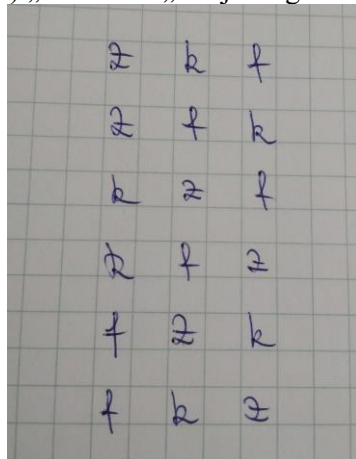 z k f
z f k
k z f
k f z
f z k
f k z